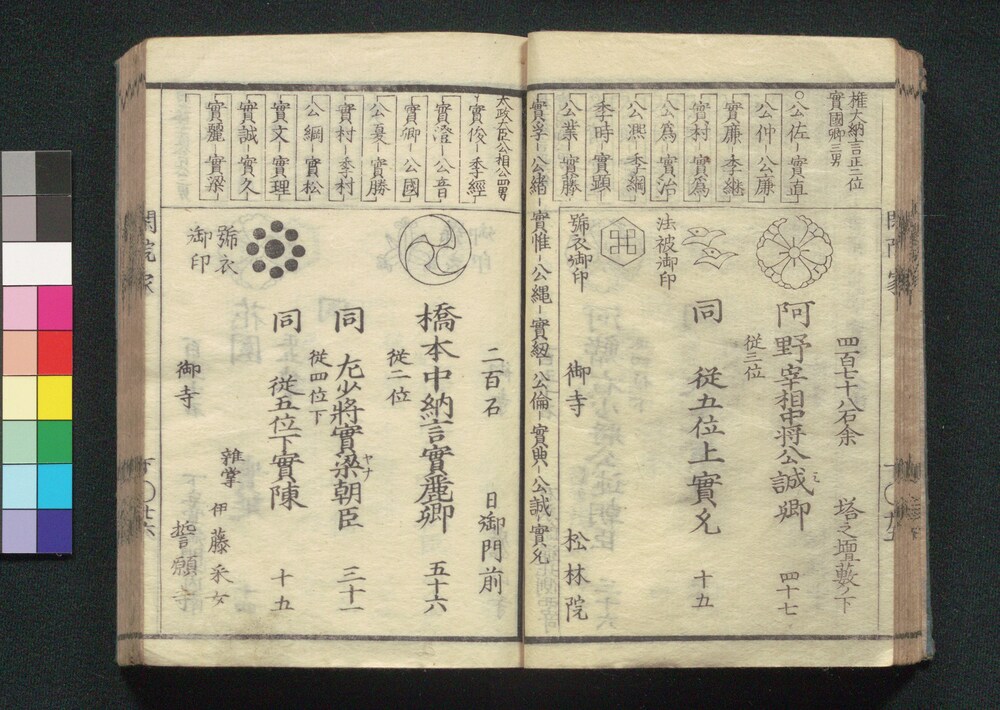 權大納言正二位
實國卿三男
○公佐－實直
公仲－公廉
實廉－季継
實村－實為
公為－實治
公凞－季綱
季時－實顕
公業－實藤
實孚－公緒－實惟－公縄－實紐－公倫－實典－公誠－實允
四百七十八石余
塔之壇藪ノ下
阿野宰相中将公誠卿
四十七
従三位
同
従五位上實允
十五
法被御印
號衣御印
御寺
松林院
太政大臣公相公四男
實俊－季經
實澄－公音
實卿－公國
公夏－實勝
實村－季村
公綱－實松
實文－實理
實誠－實久
實麗－實梁
二百石
日御門前
橋本中納言實麗卿
五十六
従二位
同
左少将實梁朝臣
ヤナ
三十一
従四位下
同
従五位下實陳
十五
號衣
御印
雑掌
伊藤采女
御寺
誓願寺
閑院家